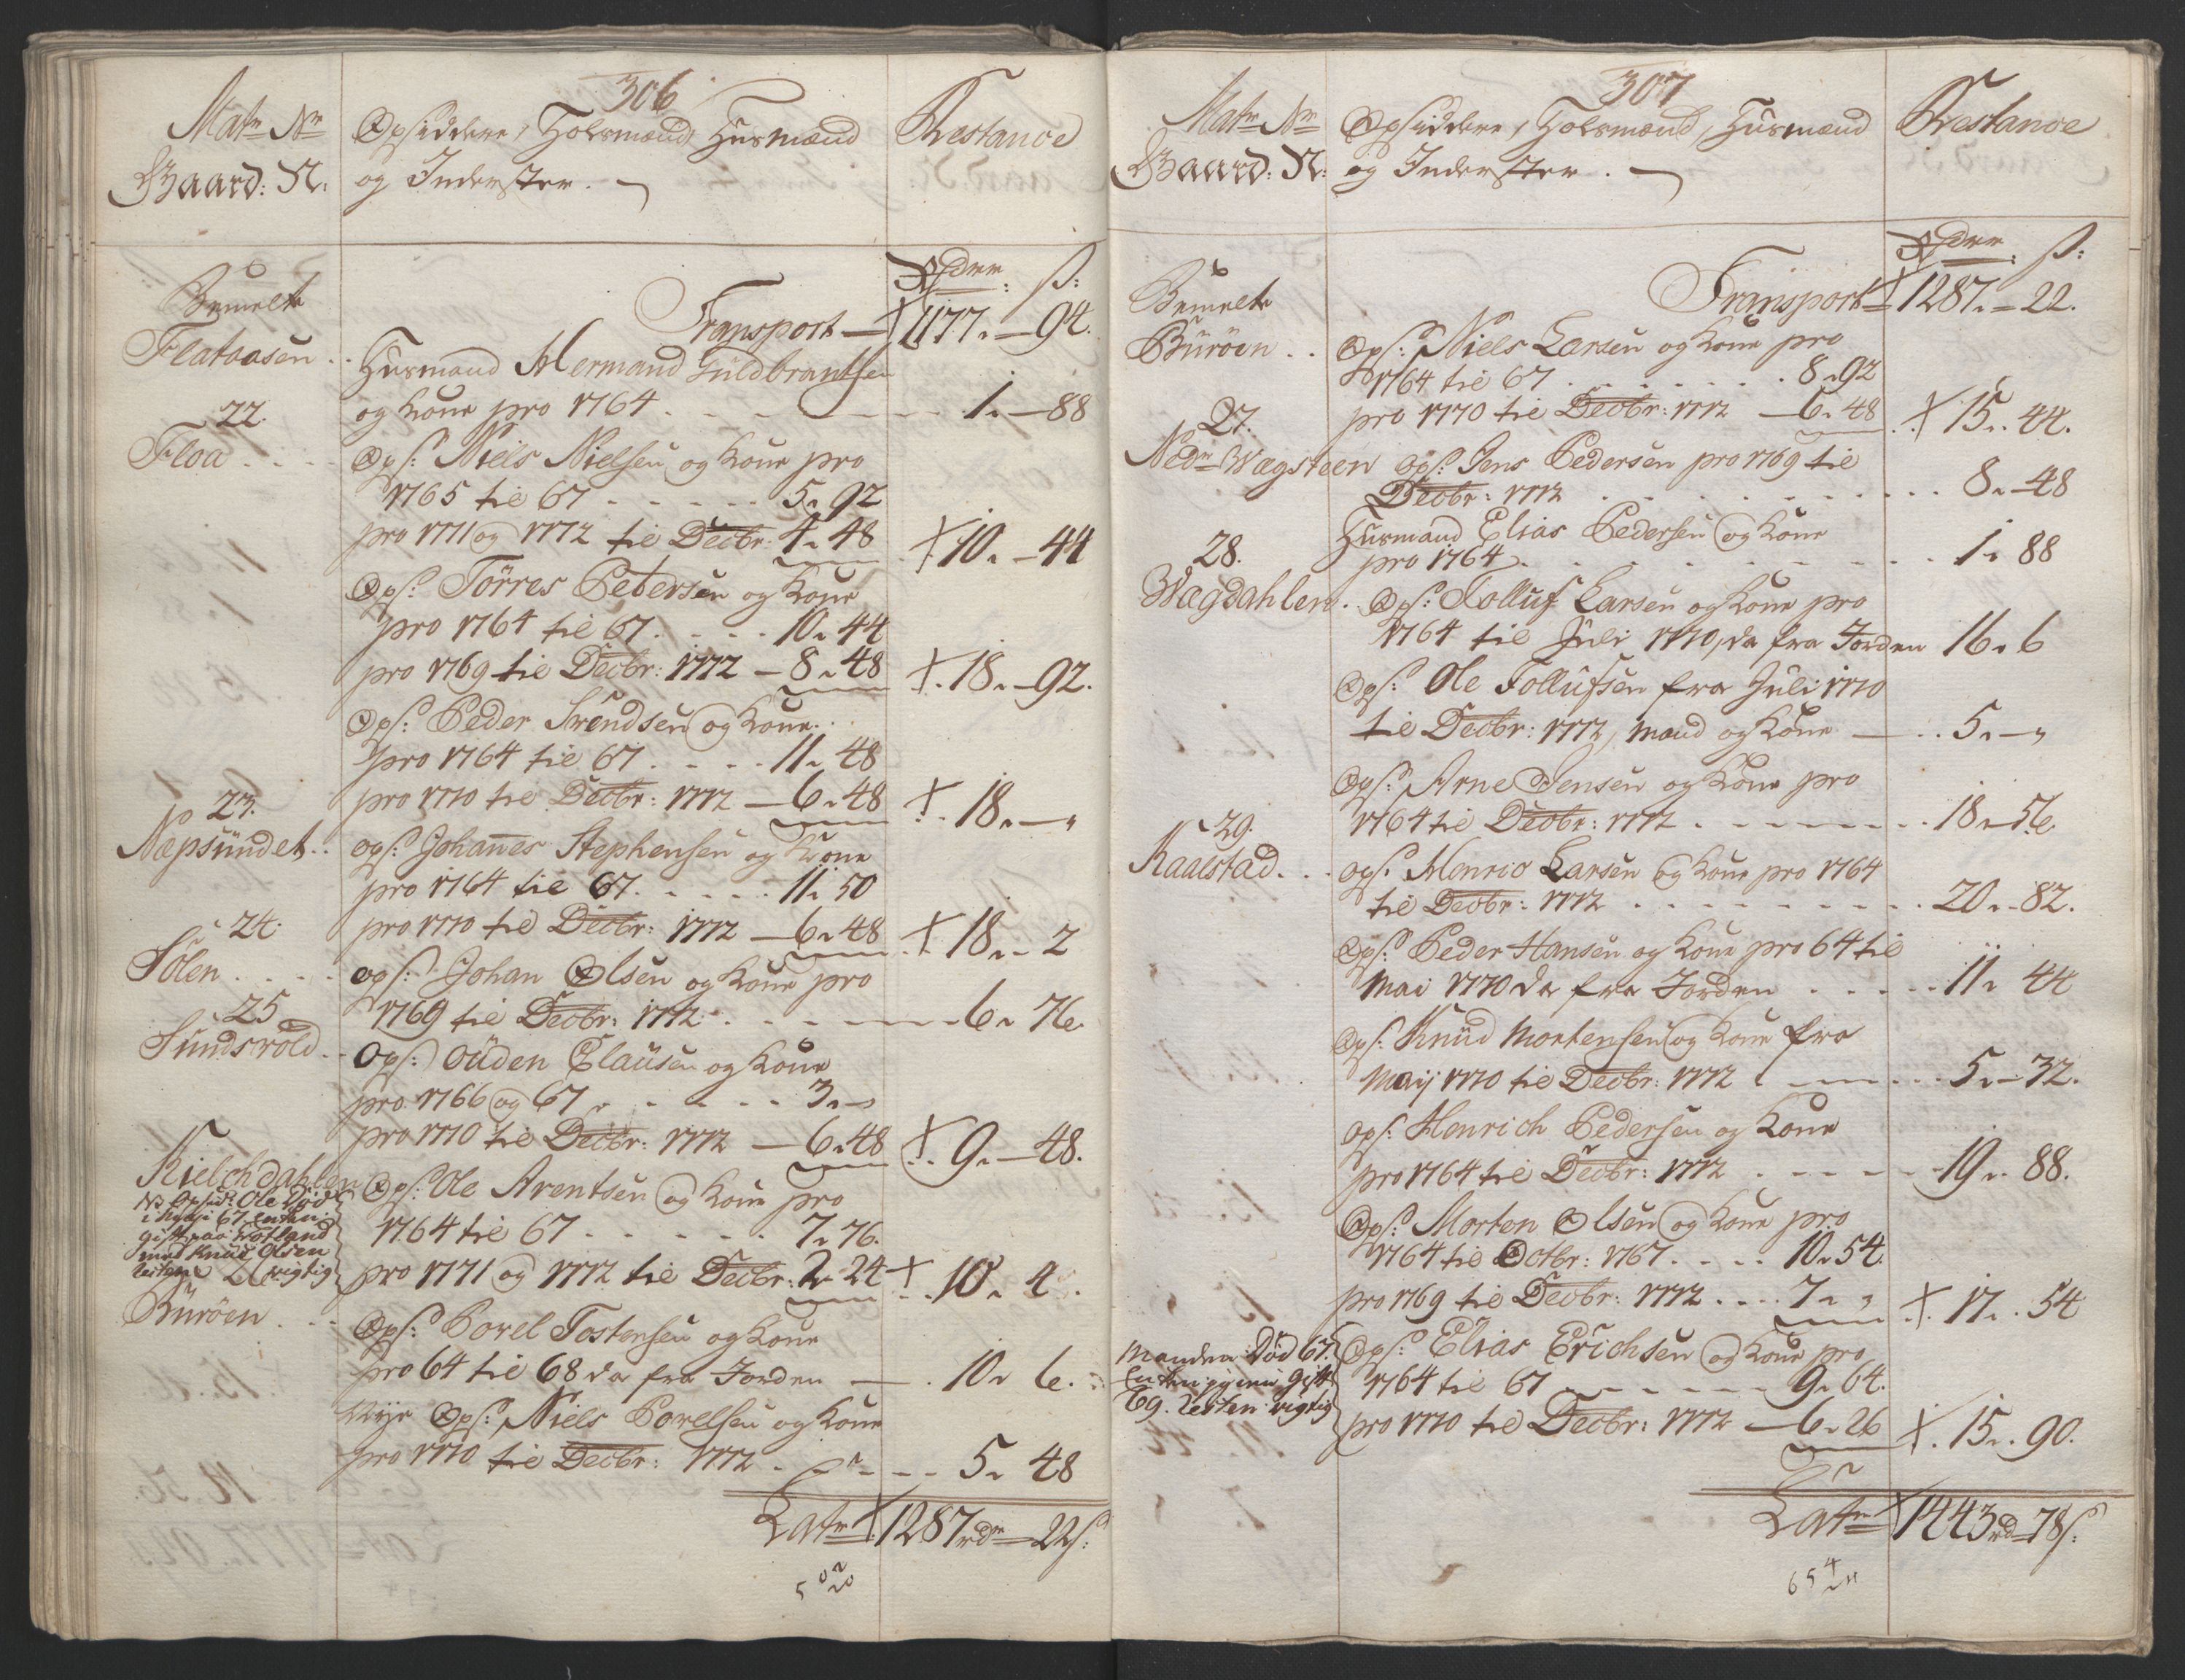 306
Matr Nr
Gaard: N:
Opsiddere, Holsmænd, Husmænd
og Inderster.
Restance
Rdr: ß:
Bemelte
Flataasen
Transport — 1177. — 94.
Husmand Hermand Guldbrantsen
og Kone pro 1764 . . . 1. — 88
22.
Floa . . .
Ops: Niels Nielsen og Kone pro
1765 til 67 . . . . . 5. 92
pro 1771 og 1772 til Decbr. 4. 48 X 10. — 44
Ops: Törres Petersen og Kone
pro 1764 til 67. . . . 10. 44
pro 1769 til Decbr: 1772 — 8. 48 X. 18. — 92.
Ops: Peder Svendsen og Kone.
pro 1764 til 67. . . . 11. 48
pro 1770 til Decbr: 1772 — 6. 48 X. 18. — "
23.
Næpsundet. .
ops: Johannes Stephensen og Kone
pro 1764 til 67. . . . 11. 50
pro 1770 til Decbr: 1772 — 6. 48 X 18. - 2
24.
Sölen . . . .
ops: Johan Olsen og Kone pro
1769 til Decbr: 1772 . . . 6. 76.
25
Sundsvold . .
Ops: Ouden Clausen og Kone
pro 1766 og 67 . . . . . 3. —
pro 1770 til Decbr: 1772 — 6. 48 X. 9. — 48.
Kielchdahlen
Ops: Ole Arentsen og Kone pro
1764 til 67 . . . . . 7. 76.
pro 1771 og 1772 til Decbr: 2. 24 X . . 10. 4 .
NB Opsid: Ole Död
i 67 Enken
gift paa
med Knud Olsen
Resten rigtig
Buröen . . .
Ops: Povel Tostensen og Kone
pro 64 til 68 da fra Jorden — . 10. 6.
Nye Ops: Niels Povelsen og Kone
pro 1770 til Decbr: 1772 . . . 5. 48
Latr X 1287 rdr — 22 ß:
307
Matr Nr
Gaard: N:
Opsiddere, Holsmænd, Husmænd
og Inderster. —
Restance
Rdr: ß:
Bemelte
Buröen . .
Transport X 1287. — 22.
Ops: Niels Larsen og Kone pro
1764 til 67 . . . . . . 8. 92
pro 1770 til Decbr: 1772 — 6. 48 X 15. . 44.
27.
Nedr Wægsteen
ops: Jens Pedersen pro 1769 til
Decbr: 1772 . . . . . . . 8. — 48
Husmand Elias Pedersen og Kone
pro 1764 . . . . . . . 1. 88
28.
Wægdahlen. .
Ops: Tolluf Larsen og Kone pro
1764 til Juli 1770, da fra Jorden 16. 6
Ops: Ole Tollufsen fra Juli 1770
til Decbr: 1772, Mand og Kone — . . 5. — "
Ops: Arne Jensen og Kone pro
1764 til Decbr: 1772 . . . . . . 18. 56.
29.
Kaalstad. . .
ops: Henric Larsen og Kone pro 1764
til Decbr: 1772 . . . . . . . 20. - 82.
Ops: Peder Hansen og Kone pro 64 til
Mai 1770 da fra Jorden . . . . 11. 44
Ops: Knud Mortensen og Kone fra
Maij 1770 til Decbr: 1772 . . . 5. — 32.
ops: Henrich Pedersen og Kone
pro 1764 til Decbr: 1772 . . . . 19. . 88.
Ops: Morten Olsen og Kone pro
1764 til Octbr: 1767. . . . 10. 54.
pro 1769 til Decbr: 1772 . . . 7. " X. 17. . 54
Manden Död 67.
Enken gift
69. Resten rigtig
Ops: Elias Erichsen og Kone pro
1764 til 67 . . . . . 9. 64.
pro 1770 til Decbr: 1772 — 6. 26 X. 15. . 90.
Latr X 1443 rd — 78 ß: